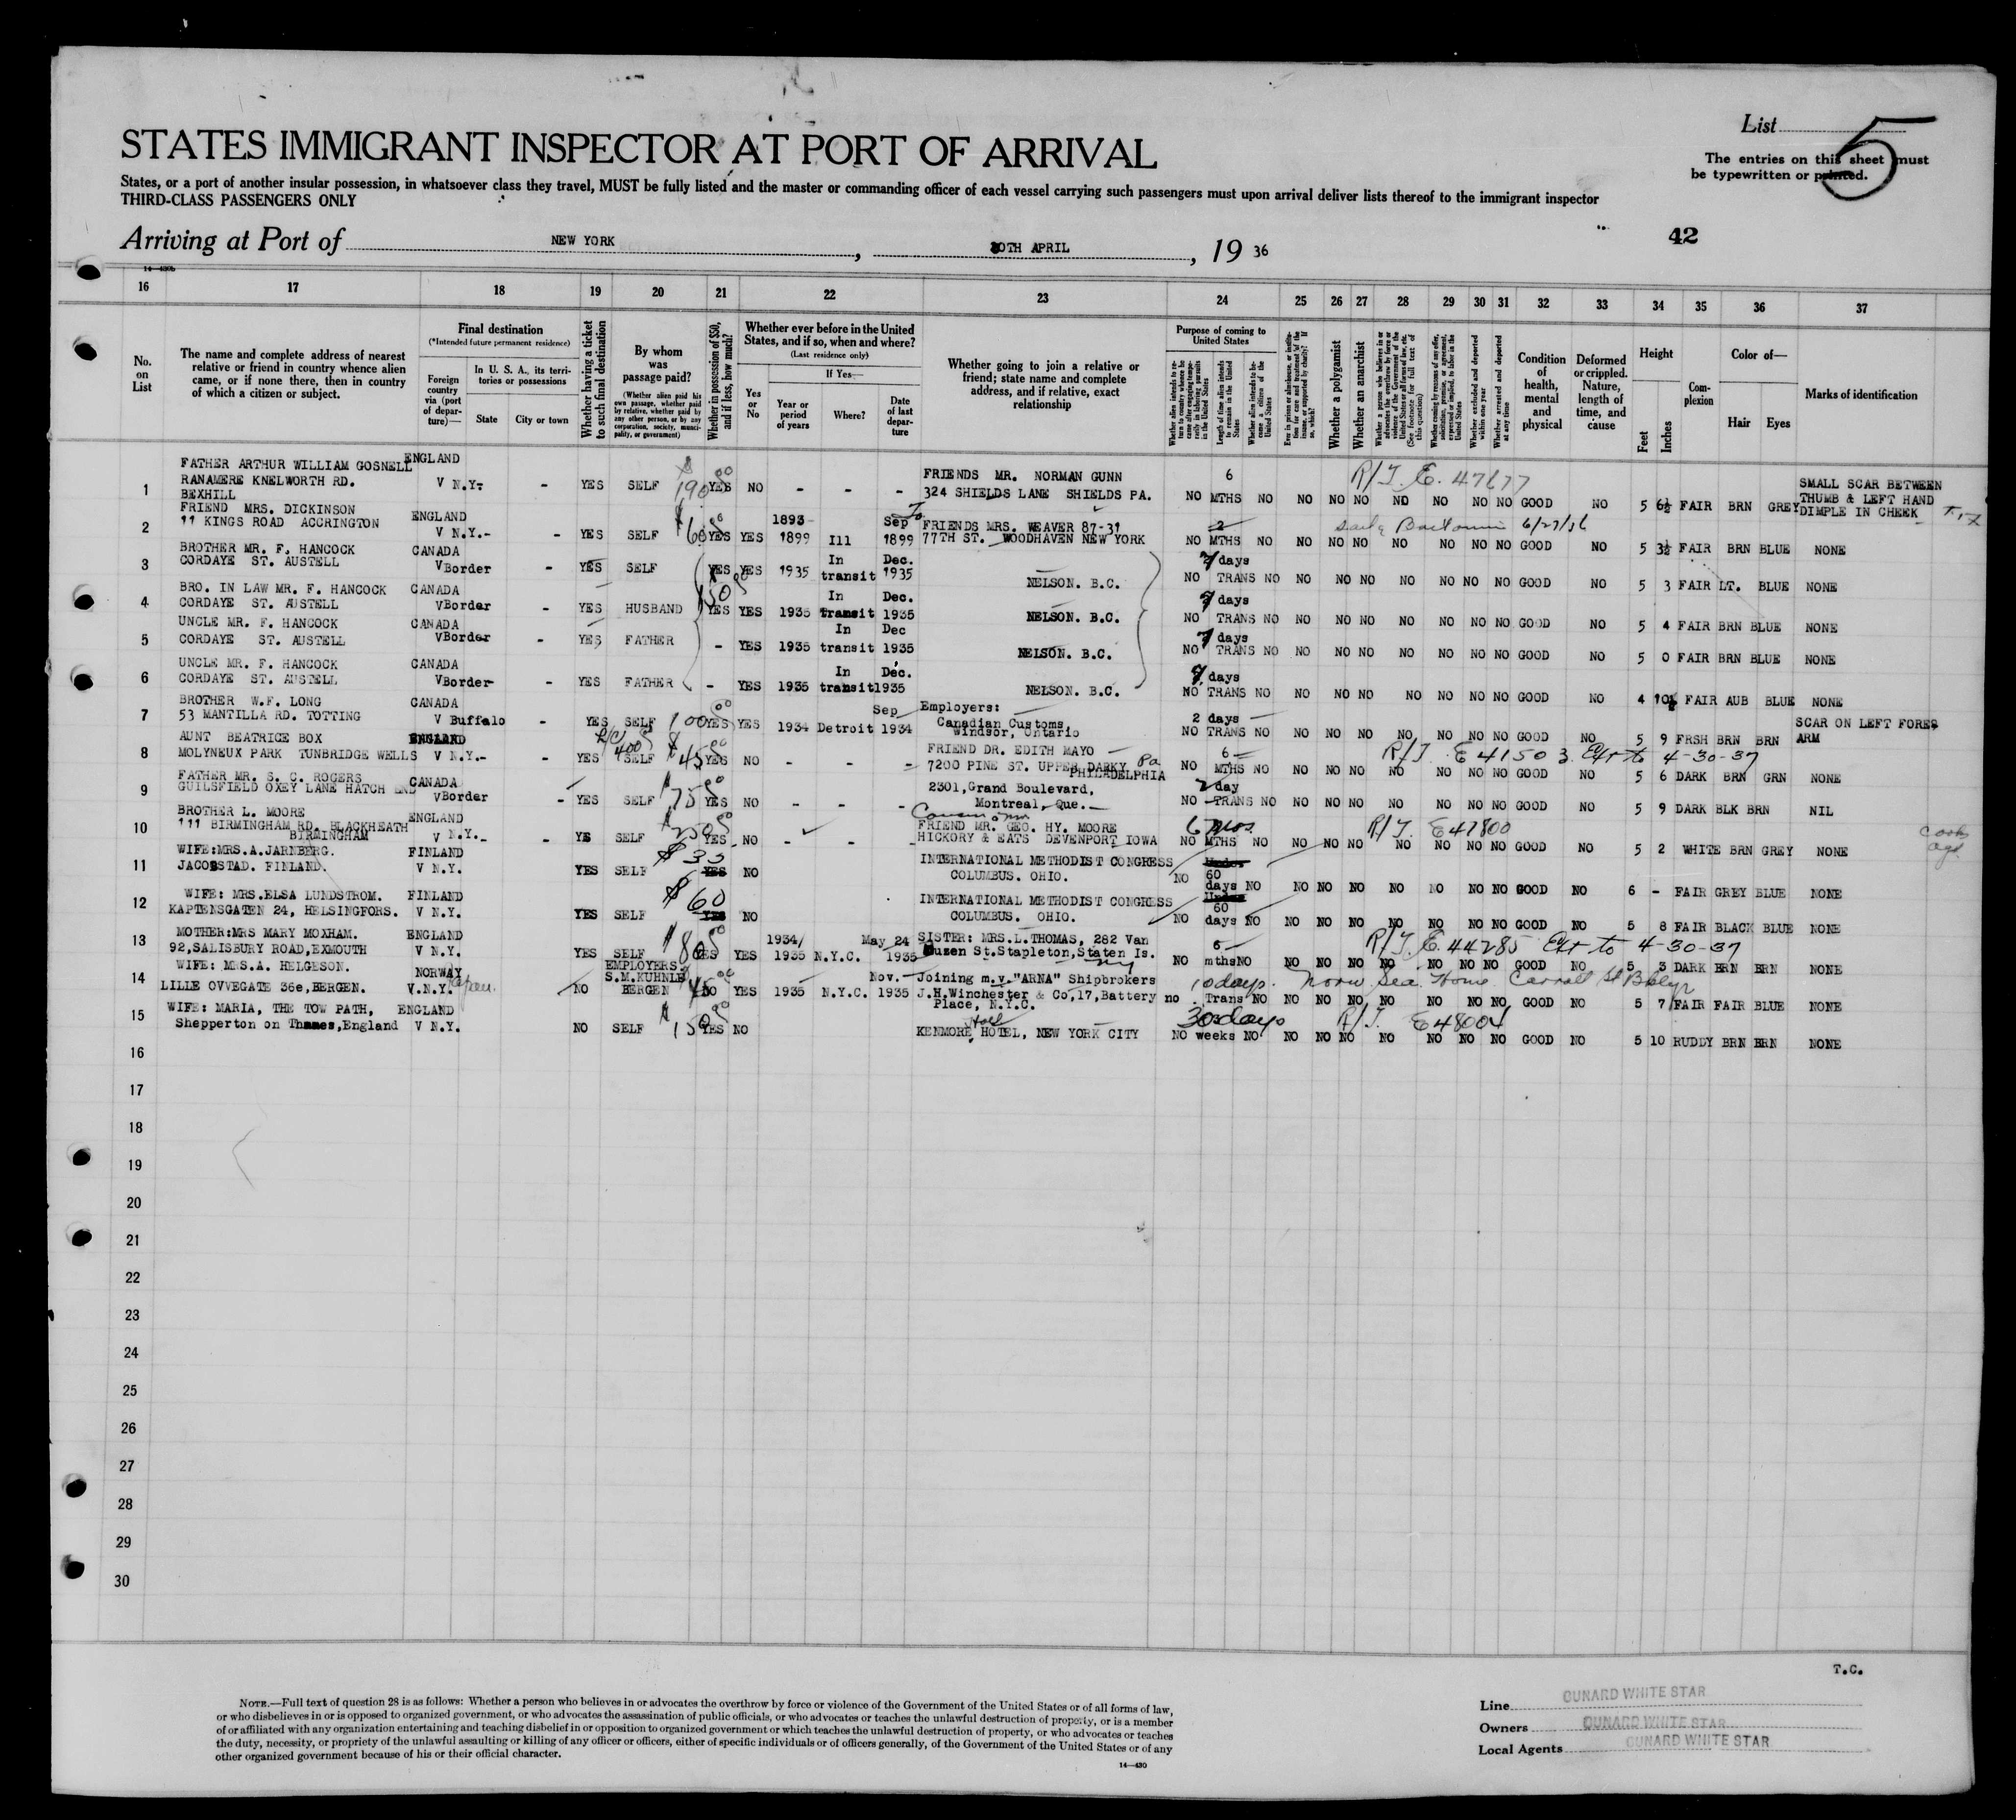 List 5
STATES IMMIGRANT INSPECTOR AT PORT OF ARRIVAL
The entries on this sheet must
be typewritten or printed.
States, or a port of another insular possession, in whatsoever class they travel, MUST be fully listed and the master or commanding officer of each vessel carrying such passengers must upon arrival deliver lists thereof to the immigrant inspector
THIRD-CLASS PASSENGERS ONLY
Arriving at Port of NEW YORK, 30TH APRIL, 19 36
42
14-430b
16 17 18 19 20 21 22 23 24 25 26 27 28 29 30 31 32 33 34 35 36 37
No. on List
The name and complete address of nearest relative or friend in country whence alien came, or if none there, then in country of which a citizen or subject.
Final destination
(*Intended future permanent residence)
Foreign country via (port of departure)—
In U. S. A., its territories or possessions
State
City or town
Whether having a ticket to such final destination
By whom was passage paid?
(Whether alien paid his own passage, whether paid by relative, whether paid by any other person, or by any corporation, society, municipality, or government)
Whether in possession of $50, and if less, how much?
Whether ever before in the United States, and if so, when and where?
(Last residence only)
Yes or No
If Yes—
Year or period of years
Where?
Date of last departure
Whether going to join a relative or friend; state name and complete address, and if relative, exact relationship
Purpose of coming to United States
Length of time alien intends to remain in the United States
Whether alien intends to become a citizen of the United States
Whether a polygamist
Whether an anarchist
Whether excluded and deported within one year
Whether arrested and deported at any time
Condition of health, mental and physical
Deformed or crippled. Nature, length of time, and cause
Height
Feet
Inches
Complexion
Color of—
Hair
Eyes
Marks of identification
1 FATHER ARTHUR WILLIAM GOSNELL RANAMERE KNELWORTH RD. BEXHILL ENGLAND V N.Y. - YES SELF $190 00 YES NO - - - FRIENDS MR. NORMAN GUNN 324 SHIELDS LANE SHIELDS PA. NO 6 MTHS NO NO NO NO NO NO NO NO GOOD NO 5 6½ FAIR BRN GREY SMALL SCAR BETWEEN THUMB & LEFT HAND DIMPLE IN CHEEK
R/T. E. 47677
2 FRIEND MRS. DICKINSON 11 KINGS ROAD ACCRINGTON ENGLAND V N.Y.- - YES SELF $60 YES YES 1893-1899 Ill Sep 1899 FRIENDS MRS. WEAVER 87-31 77TH ST. WOODHAVEN NEW YORK NO 2 MTHS NO NO NO NO NO NO NO NO GOOD NO 5 3½ FAIR BRN BLUE NONE
6/27/36
3 BROTHER MR. F. HANCOCK CORDAYE ST. AUSTELL CANADA V Border - YES SELF YES YES 1935 In transit Dec. 1935 NELSON. B.C. NO 7 days TRANS NO NO NO NO NO NO NO NO GOOD NO 5 3 FAIR LT. BLUE NONE
4 BRO. IN LAW MR. F. HANCOCK CORDAYE ST. AUSTELL CANADA V Border - YES HUSBAND YES YES 1935 In Transit Dec. 1935 NELSON. B.C. NO 7 days TRANS NO NO NO NO NO NO NO NO GOOD NO 5 4 FAIR BRN BLUE NONE
5 UNCLE MR. F. HANCOCK CORDAYE ST. AUSTELL CANADA V Border - YES FATHER - YES 1935 In transit Dec 1935 NELSON. B.C. NO 7 days TRANS NO NO NO NO NO NO NO NO GOOD NO 5 0 FAIR BRN BLUE NONE
6 UNCLE MR. F. HANCOCK CORDAYE ST. AUSTELL CANADA V Border - YES FATHER - YES 1935 In transit Dec. 1935 NELSON. B.C. NO 7 days TRANS NO NO NO NO NO NO NO NO GOOD NO 4 10½ FAIR AUB BLUE NONE
7 BROTHER W.F. LONG 53 MANTILLA RD. TOTTING CANADA V Buffalo - YES SELF 100 00 YES YES 1934 Detroit Sep 1934 Employers: Canadian Customs, Windsor, Ontario NO 2 days TRANS NO NO NO NO NO NO NO NO GOOD NO 5 9 FRSH BRN BRN SCAR ON LEFT FORE ARM
8 AUNT BEATRICE BOX MOLYNEUX PARK TUNBRIDGE WELLS ENGLAND V N.Y.- - YES SELF $45 00 YES NO - - - FRIEND DR. EDITH MAYO 7200 PINE ST. UPPER DARKY Pa PHILADELPHIA NO 6 MTHS NO NO NO NO NO NO NO NO GOOD NO 5 6 DARK BRN GRN NONE
R/T. E 41503 Ext to 4-30-37
9 FATHER MR. S. C. ROGERS GUILSFIELD OXEY LANE HATCH END CANADA V Border - YES SELF $75 00 YES NO - - - 2301, Grand Boulevard, Montreal, Que. NO 2 day TRANS NO NO NO NO NO NO NO NO GOOD NO 5 9 DARK BLK BRN NIL
10 BROTHER L. MOORE 111 BIRMINGHAM RD. BLACKHEATH BIRMINGHAM ENGLAND V N.Y.- - YE SELF $250 YES NO - - - FRIEND MR. GEO. HY. MOORE HICKORY & EATS DEVENPORT IOWA NO 6 mos. MTHS NO NO NO NO NO NO NO NO GOOD NO 5 2 WHITE BRN GREY NONE
R/T. E 47800
11 WIFE:MRS.A.JARNBERG. JACOBSTAD. FINLAND. FINLAND V N.Y. YES SELF $35 YES NO INTERNATIONAL METHODIST CONGRESS COLUMBUS. OHIO. NO Under 60 days NO NO NO NO NO NO NO NO GOOD NO 6 - FAIR GREY BLUE NONE
12 WIFE: MRS.ELSA LUNDSTROM. KAPTENSGATEN 24, HELSINGFORS. FINLAND V N.Y. YES SELF $60 YES NO INTERNATIONAL METHODIST CONGRESS COLUMBUS. OHIO. NO Under 60 days NO NO NO NO NO NO NO NO GOOD NO 5 8 FAIR BLACK BLUE NONE
13 MOTHER:MRS MARY MOXHAM. 92,SALISBURY ROAD,EXMOUTH ENGLAND V N.Y. YES SELF $80 YES YES 1934/1935 N.Y.C. May 24 1935 SISTER: MRS.L.THOMAS, 282 Van Duzen St.Stapleton,Staten Is. NY NO 6 mths NO NO NO NO NO NO NO NO GOOD NO 5 3 DARK BRN BRN NONE
R/T. E. 44285 Ext to 4-30-37
14 WIFE: MRS.A. HELGESON. LILLE OVVEGATE 36e,BERGEN. NORWAY V.N.Y. Japan. NO EMPLOYERS S.M.KUHNLE BERGEN $45 00 NO YES 1935 N.Y.C. Nov. 1935 Joining m.v."ARNA" Shipbrokers J.H.Winchester & Co,17,Battery Place, N.Y.C. no 10 days. Trans NO NO NO NO NO NO NO NO GOOD NO 5 7 FAIR FAIR BLUE NONE
Norw Sea. Home Carroll St Bklyn
15 WIFE: MARIA, THE TOW PATH, Shepperton on Thames,England ENGLAND V N.Y. NO SELF $150 YES NO KENMORE Hall HOTEL, NEW YORK CITY NO 30 days weeks NO NO NO NO NO NO NO NO GOOD NO 5 10 RUDDY BRN BRN NONE
R/T. E 48004
16
17
18
19
20
21
22
23
24
25
26
27
28
29
30
T.C.
NOTE.—Full text of question 28 is as follows: Whether a person who believes in or advocates the overthrow by force or violence of the Government of the United States or of all forms of law,
or who disbelieves in or is opposed to organized government, or who advocates the assassination of public officials, or who advocates or teaches the unlawful destruction of property, or is a member
of or affiliated with any organization entertaining and teaching disbelief in or opposition to organized government or which teaches the unlawful destruction of property, or who advocates or teaches
the duty, necessity, or propriety of the unlawful assaulting or killing of any officer or officers, either of specific individuals or of officers generally, of the Government of the United States or of any
other organized government because of his or their official character.
14-430
Line CUNARD WHITE STAR
Owners CUNARD WHITE STAR
Local Agents CUNARD WHITE STAR